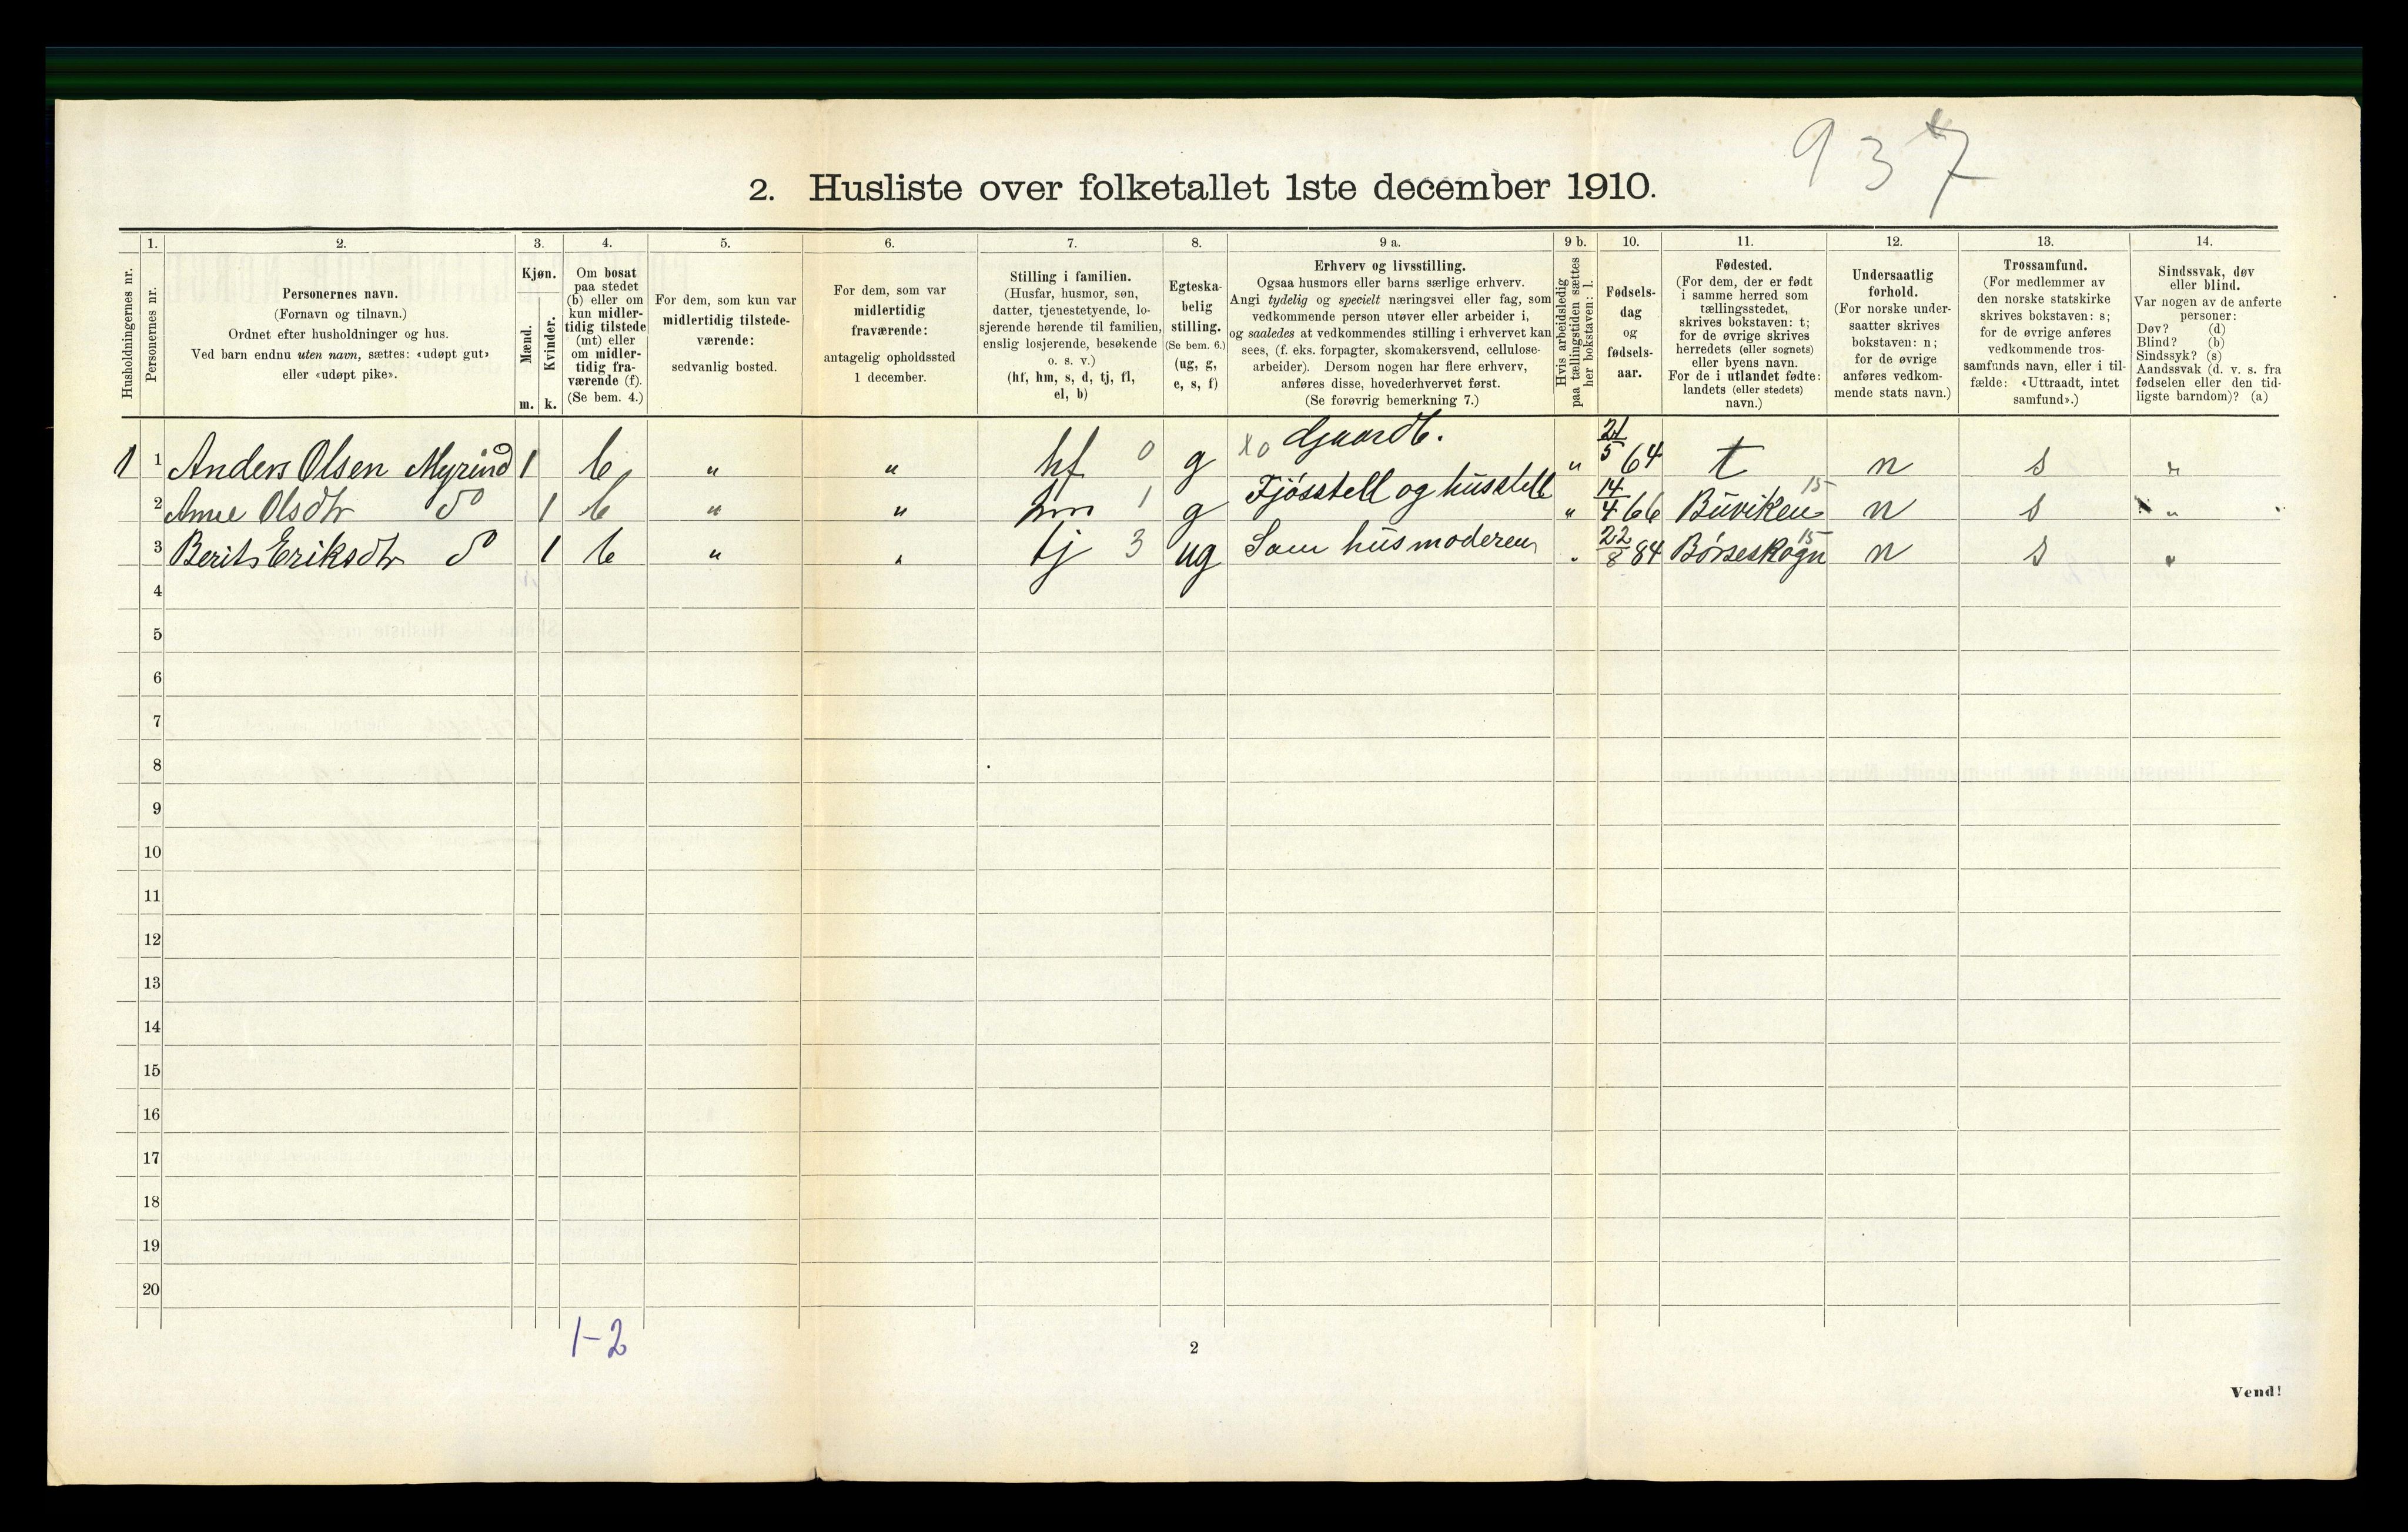 937
2. Husliste over folketallet 1ste december 1910.
Husholdningernes nr.
1.
Personernes nr.
2.
Personernes navn.
(Fornavn og tilnavn.)
Ordnet efter husholdninger og hus.
Ved barn endnu uten navn, sættes: «udøpt gut»
eller «udøpt pike».
3.
Kjøn.
Mænd.
Kvinder.
m. k.
4.
Om bosat
paa stedet
(b) eller om
kun midler-
tidig tilstede
(mt) eller
om midler-
tidig fra-
værende (f).
(Se bem. 4.)
5.
For dem, som kun var
midlertidig tilstede-
værende:
sedvanlig bosted.
6.
For dem, som var
midlertidig
fraværende:
antagelig opholdssted
1 december.
7.
Stilling i familien.
(Husfar, husmor, søn,
datter, tjenestetyende, lo-
sjerende hørende til familien,
enslig losjerende, besøkende
o. s. v.)
(hf, hm, s, d, tj, fl,
el, b)
8.
Egteska-
belig
stilling.
(Se bem. 6.)
(ug, g,
e, s, f)
9 a.
Erhverv og livsstilling.
Ogsaa husmors eller barns særlige erhverv.
Angi tydelig og specielt næringsvei eller fag, som
vedkommende person utøver eller arbeider i,
og saaledes at vedkommendes stilling i erhvervet kan
sees, (f. eks. forpagter, skomakersvend, cellulose-
arbeider). Dersom nogen har flere erhverv,
anføres disse, hovederhvervet først.
(Se forøvrig bemerkning 7.)
9 b.
Hvis arbeidsledig
paa tællingstiden sættes
her bokstaven: l.
10.
Fødsels-
dag
og
fødsels-
aar.
11.
Fødested.
(For dem, der er født
i samme herred som
tællingsstedet,
skrives bokstaven: t;
for de øvrige skrives
herredets (eller sognets)
eller byens navn.
For de i utlandet fødte:
landets (eller stedets)
navn.)
12.
Undersaatlig
forhold.
(For norske under-
saatter skrives
bokstaven: n;
for de øvrige
anføres vedkom-
mende stats navn.)
13.
Trossamfund.
(For medlemmer av
den norske statskirke
skrives bokstaven: s;
for de øvrige anføres
vedkommende tros-
samfunds navn, eller i til-
fælde: «Uttraadt, intet
samfund».)
14.
Sindssvak, døv
eller blind.
Var nogen av de anførte
personer:
Døv? (d)
Blind? (b)
Sindssyk? (s)
Aandssvak (d. v. s. fra
fødselen eller den tid-
ligste barndom)? (a)
1 1 Anders Olsen Myrind 1 b " " hf 0 g X0 Gaardb. " 21/5 64 t n s "
2 Anne Olsdtr do 1 b " " hm 1 g Fjøsstell og husstell " 14/4 66 Buviken 15 n s "
3 Berit Eriksdtr do 1 b " " tj 3 ug Som husmoderen " 22/8 84 Børseskogn 15 n s "
4
5
6
7
8
9
10
11
12
13
14
15
16
17
18
19
20
1-2
2
Vend!